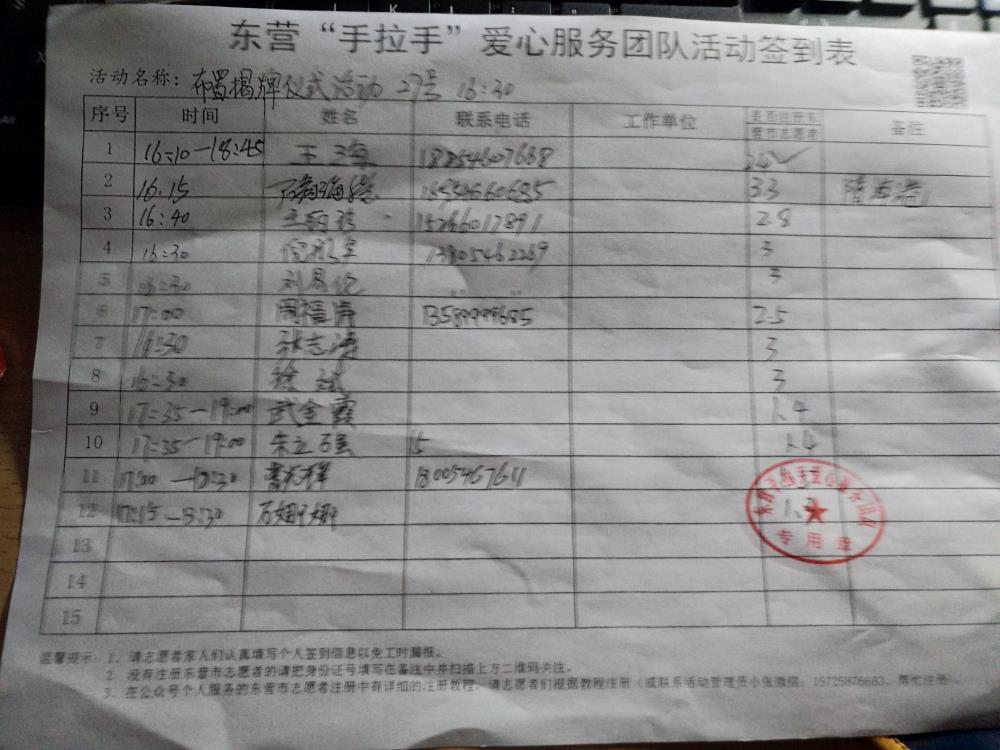 东营“手拉手”爱心服务团队活动签到表
活动名称：布置揭牌仪式活动 27号 16:30
序号 时间 姓名 联系电话 工作单位 是否注册东营市志愿者 备注
1 16:10-18:45 王海 18854607668
2 16.15 33
3 16:40 15266017891 2.8
4 16:30 13805462269 3
5 16:30 刘易伦 3
6 17:00 周福涛 13589999685 2.5
7 16:30 张志涛 3
8 16:30 徐斌 3
9 17:35-19:00 武金霞 1.4
10 17:35-19:00 朱立强 15 1.4
11 17:00-18:30 18005467611
12 17:15-18:30 石娜娜
专用章
13
14
15
温馨提示：1、请志愿者家人们认真填写个人签到信息以免工时漏报。
2、没有注册东营市志愿者的请把身份证号填写在备注中并扫描上方二维码关注。
3、在公众号个人服务的东营市志愿者注册中有详细的注册教程，请志愿者们根据教程注册（或联系活动管理员小张微信：15725876683，帮忙注册）。